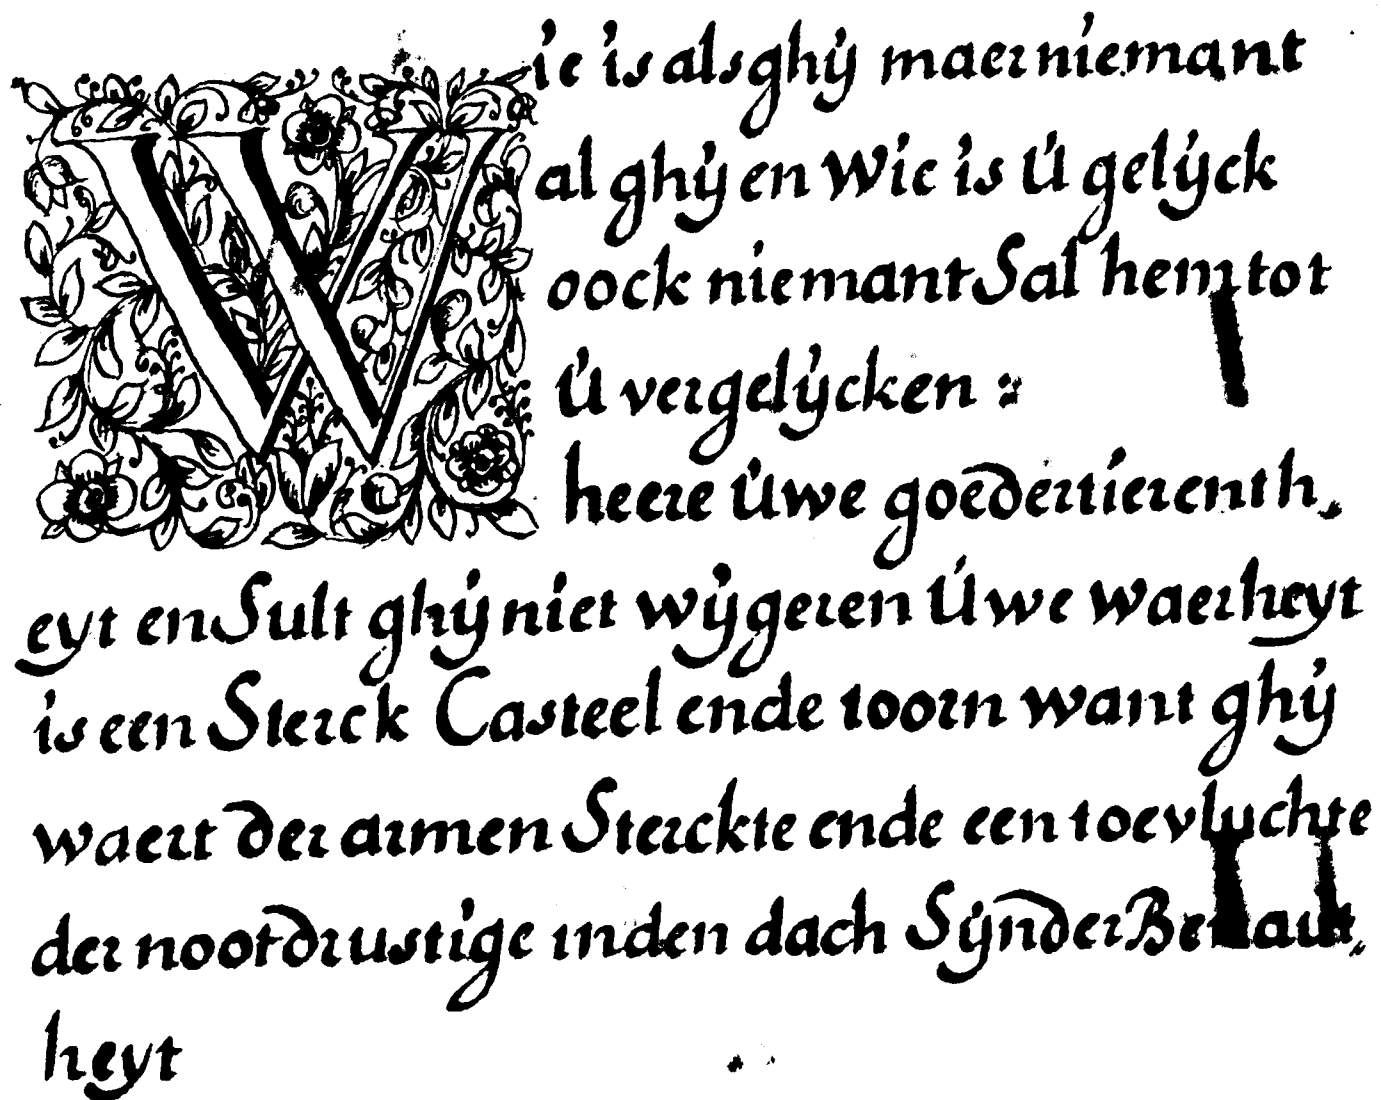 Wie is als ghÿ maer niemant
al ghÿ en Wie is Ú gelÿck
oock niemant Sal hem tot
Ú vergelÿcken :
heere Úwe goedertierenth„
eyt en Sult ghÿ niet wÿgeren Úwe waerheyt
is een Sterck Casteel ende toorn want ghÿ
waert der armen Sterckte ende een toevluchte
der nootdrustige inden dach Sÿnder Benaut„
heyt